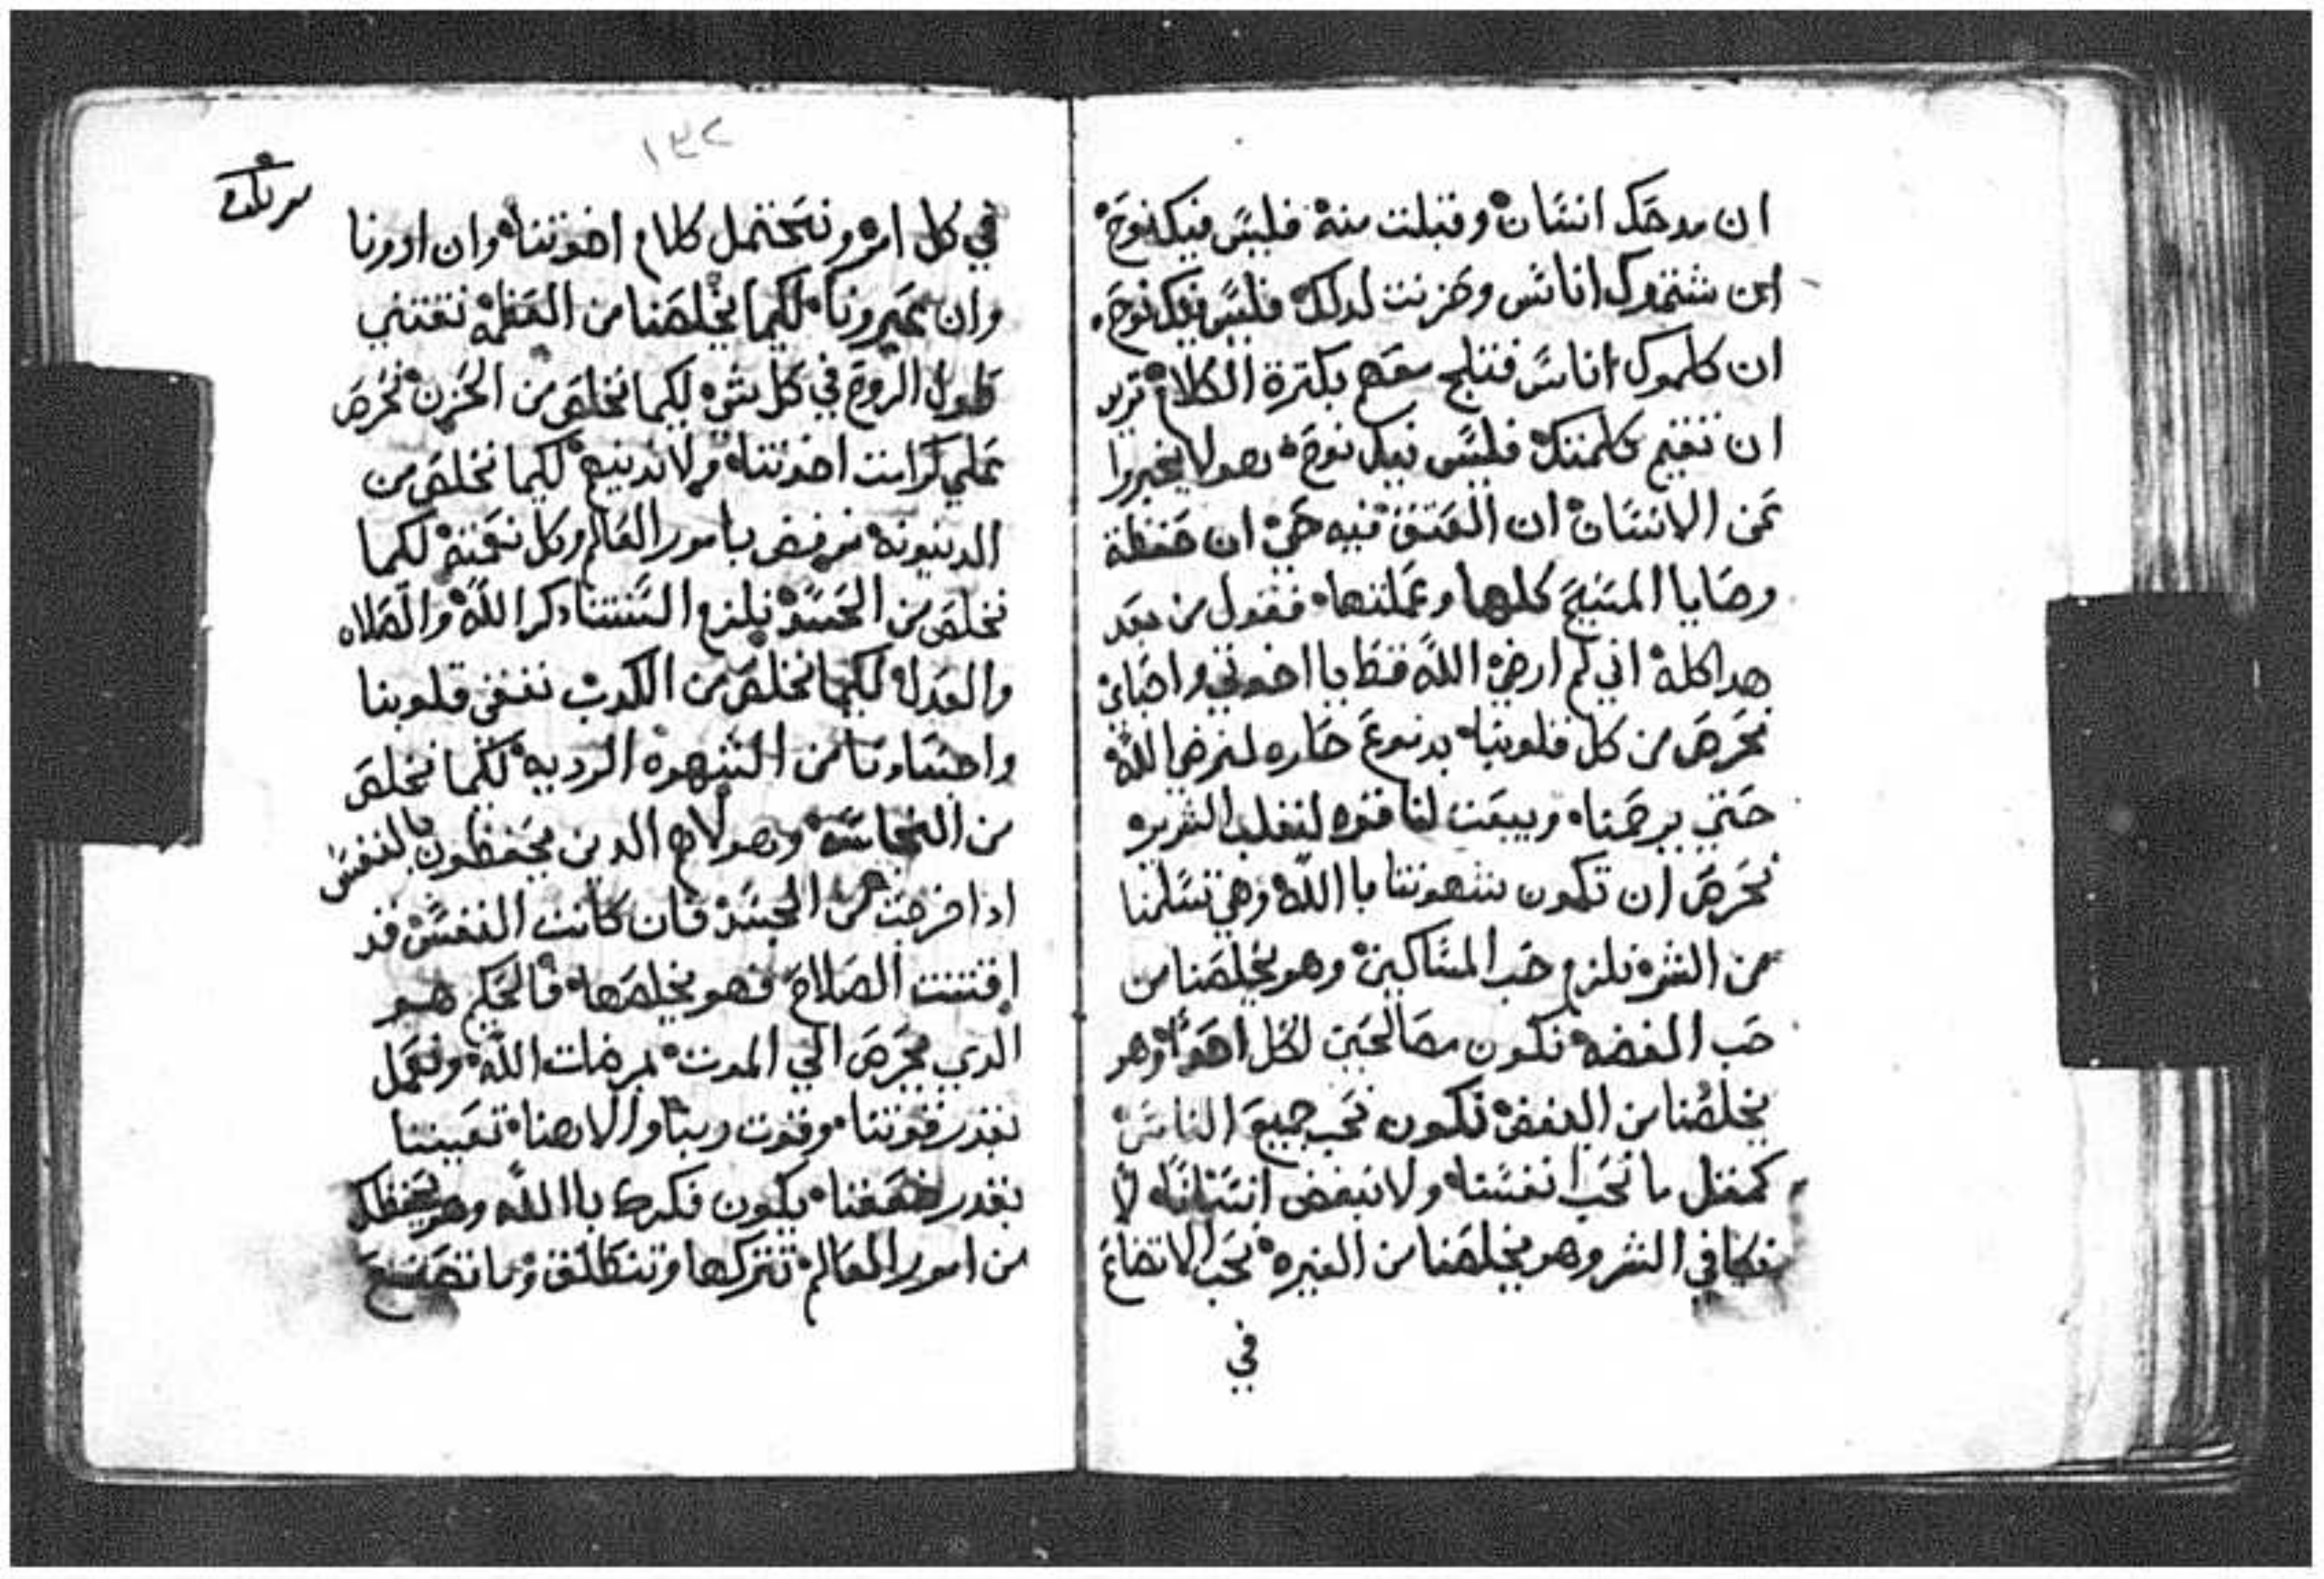 ان مدحك انسان وقبلت منه فليس فيك نوح
ان شتموك اناس وحزنت لدلك فليس فيك نوح
ان كلموك اناس فتلج معهم بكترة الكلام تريد
ان تقيم كلمتك فليس فيك نوح هولا يخبروا
عن الانسان ان العتق فيه حي ان حفظة
وصايا المسيح كلها وعملتها فقول من بعد
هدا كله اني لم ارضي الله قط يا اخوتي واحباي
نحرص من كل قلوبنا بدموع حاره لنرضي الله
حتي يرحمنا ويبعت لنا قوه لنغلب الشرير
نحرص ان تكون شهوتنا با الله وهي تسلمنا
من الشره نلزم حب المساكين وهو يخلصنا من
حب الفضه نكون مصالحين لكل احد وهو
يخلصنا من البغض نكون نحب جميع الناس
كمتل ما نحب انفسنا ولا نبغض انسانا لا
نكافي الشر وهو يخلصنا من الغيره نحب الاتضاع
في
١٣٢
في كل امر ونحتمل كلام اخوتنا وان ادونا
وان عيرونا لكيما يخلصنا من العظمه نقتني
طول الروح في كل شي لكيما نخلص من الحزن نحرص
علي كرامت اخوتنا ولا ندينهم لكيما نخلص من
الدينونه نرفض بامور العالم وكل نعمته لكيما
نخلص من الحسد نلزم السنتنا دكر الله والصلاه
والعدل لكيما نخلص من الكدب ننقي قلوبنا
واجسادنا من الشهوه الرديه لكيما نخلص
من النجاسه وهولاي الدين يحفظون بالنفس
ادا خرجت من الجسد فان كانت النفس قد
اقتنت الصلاح فهو يخلصها فالحكيم هو
الدي يحرص الي الموت بمرضات الله ونعمل
بقدر قوتنا وقوت ربنا والاهنا تعيننا
بقدر ضعفنا يكون فكرك با الله وهو يحفظك
من امور العالم تتركها وتتكلف وما تصنع